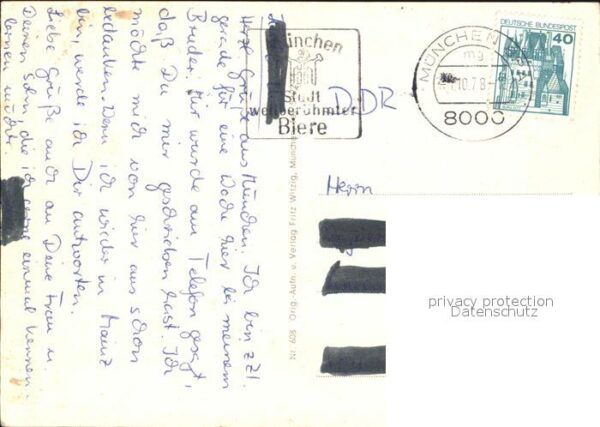 Herzl. Grüße aus München. Ich bin zZt.
gerade für eine Woche hier bei meinem
Bruder. Mir wurde am Telefon gesagt,
daß Du mir geschrieben hast. Ich
möchte mich von hier aus schon
bedanken. Wenn ich wieder in Mainz
bin, werde ich Dir antworten.
Liebe Grüße auch an Deine Frau u.
Deinen Sohn, die ich gerne einmal kennen-
lernen möchte.
München
Stadt
weltberühmter
Biere
DDR
MÜNCHEN
mg
10.78
8000
DEUTSCHE BUNDESPOST
40
Herrn
Nr. 4926 Orig.-Aufn. u. Verlag Fritz Witzig, München
privacy protection
Datenschutz